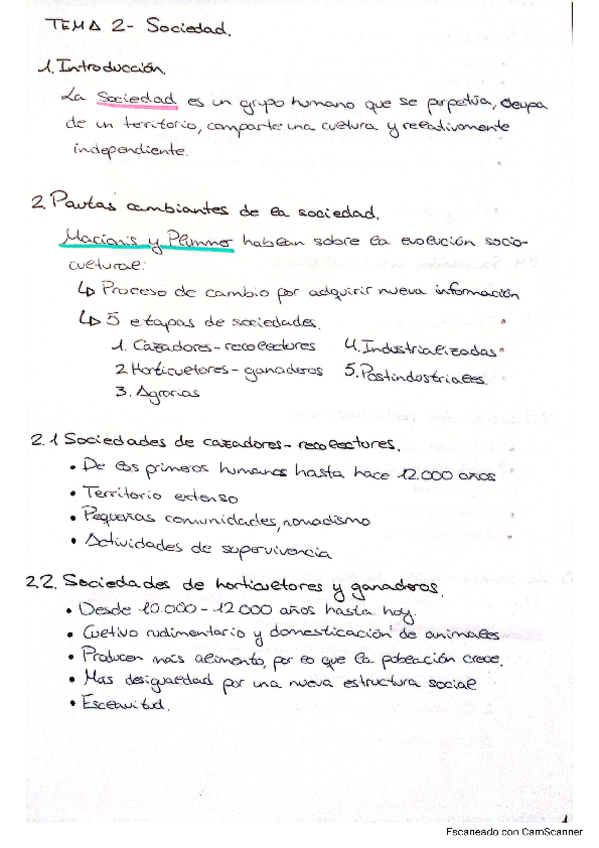 TEMA 2- Sociedad.
1. Introducción.
La Sociedad es un grupo humano que se perpetúa, ocupa
de un territorio, comparte una cultura y relativamente
independiente.
2. Pautas cambiantes de la sociedad.
Macionis y Plummer hablan sobre la evolución socio-
cultural:
↳ Proceso de cambio por adquirir nueva información
↳ 5 etapas de sociedades.
1. Cazadores-recolectores 4. Industrializadas
2 Horticultores-ganaderos 5. Postindustriales.
3. Agrarias
2.1 Sociedades de cazadores-recolectores.
• De los primeros humanos hasta hace 12.000 años
• Territorio extenso
• Pequeñas comunidades, nomadismo
• Actividades de supervivencia
2.2. Sociedades de horticultores y ganaderos.
• Desde 10.000-12.000 años hasta hoy.
• Cultivo rudimentario y domesticación de animales
• Producen más alimento, por lo que la población crece.
• Mas desigualdad por una nueva estructura social
• Esclavitud.
1
Escaneado con CamScanner